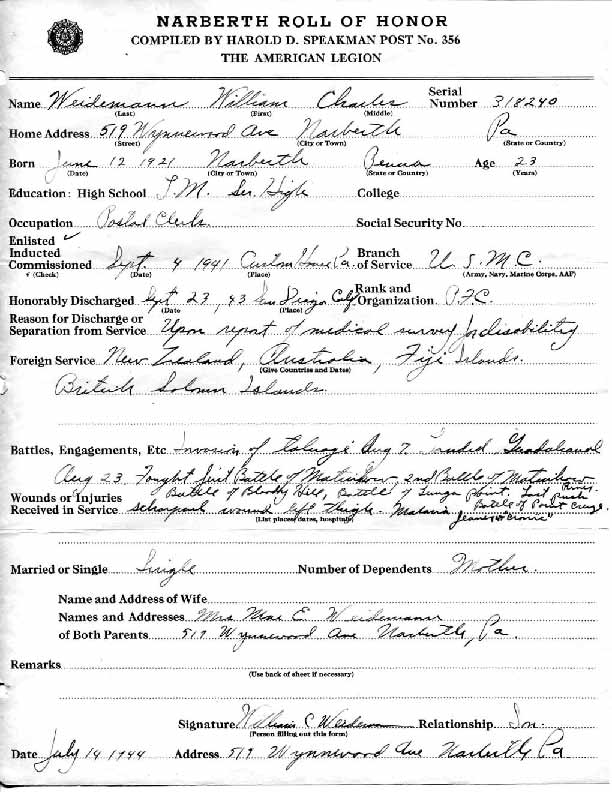 NARBERTH ROLL OF HONOR
COMPILED BY HAROLD D. SPEAKMAN POST No. 356
THE AMERICAN LEGION
Name Weidemann William Charles Serial Number 318240
(Last) (First) (Middle)
Home Address 519 Wynnewood Ave Narberth Pa
(Street) (City or Town) (State or Country)
Born June 12 1921 Narberth Penna Age 23
(Date) (City or Town) (State or Country) (Years)
Education: High School L.M. Sen. High College
Occupation Postal Clerk Social Security No.
Enlisted ✓
Inducted
Commissioned Sept. 4 1941 Custom House Pa. Branch of Service U.S.M.C.
✓ (Check) (Date) (Place) (Army, Navy, Marine Corps, AAF)
Honorably Discharged Sept 23, 43 San Diego Calf Rank and Organization P.F.C.
(Date (Place)
Reason for Discharge or
Separation from Service Upon report of medical survey for disability
Foreign Service New Zealand, Australia, Fiji Islands.
(Give Countries and Dates)
British Solomn Islands.
Battles, Engagements, Etc Invasion of Aug 7 Landed Guadalcanal
Aug 23. Fought First Battle of , 2nd Battle of
Battle of Bloody Hill, Battle of Point. Last
Wounds or Injuries
Received in Service wound left thigh. Malaria Battle of Point Cruz.
(List places, dates, hospitals)
Married or Single Single Number of Dependents Mother
Name and Address of Wife
Names and Addresses Mrs Mae E. Weidemann
of Both Parents 519 Wynnewood Ave Narberth, Pa.
Remarks
(Use back of sheet if necessary)
Signature William C Weidemann Relationship Son
(Person filling out this form)
Date July 14 1944 Address 519 Wynnewood Ave Narberth Pa